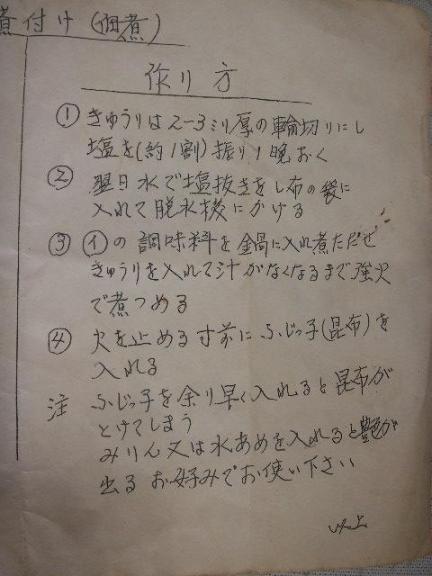 煮付け(佃煮)
作り方
① きゅうりは2-3ミリ厚の輪切りにし
塩を(約1割)振り1晩おく
② 翌日水で塩抜きをし布の袋に
入れて脱水機にかける
③ ①の調味料を鍋に入れ煮たたせ
きゅうりを入れて汁がなくなるまで強火
で煮つめる
④ 火を止める寸前にふじっ子(昆布)を
入れる
注 ふじっ子を余り早く入れると昆布が
とけてしまう
みりん又は水あめを入れると艶が
出る お好みでお使い下さい
以上